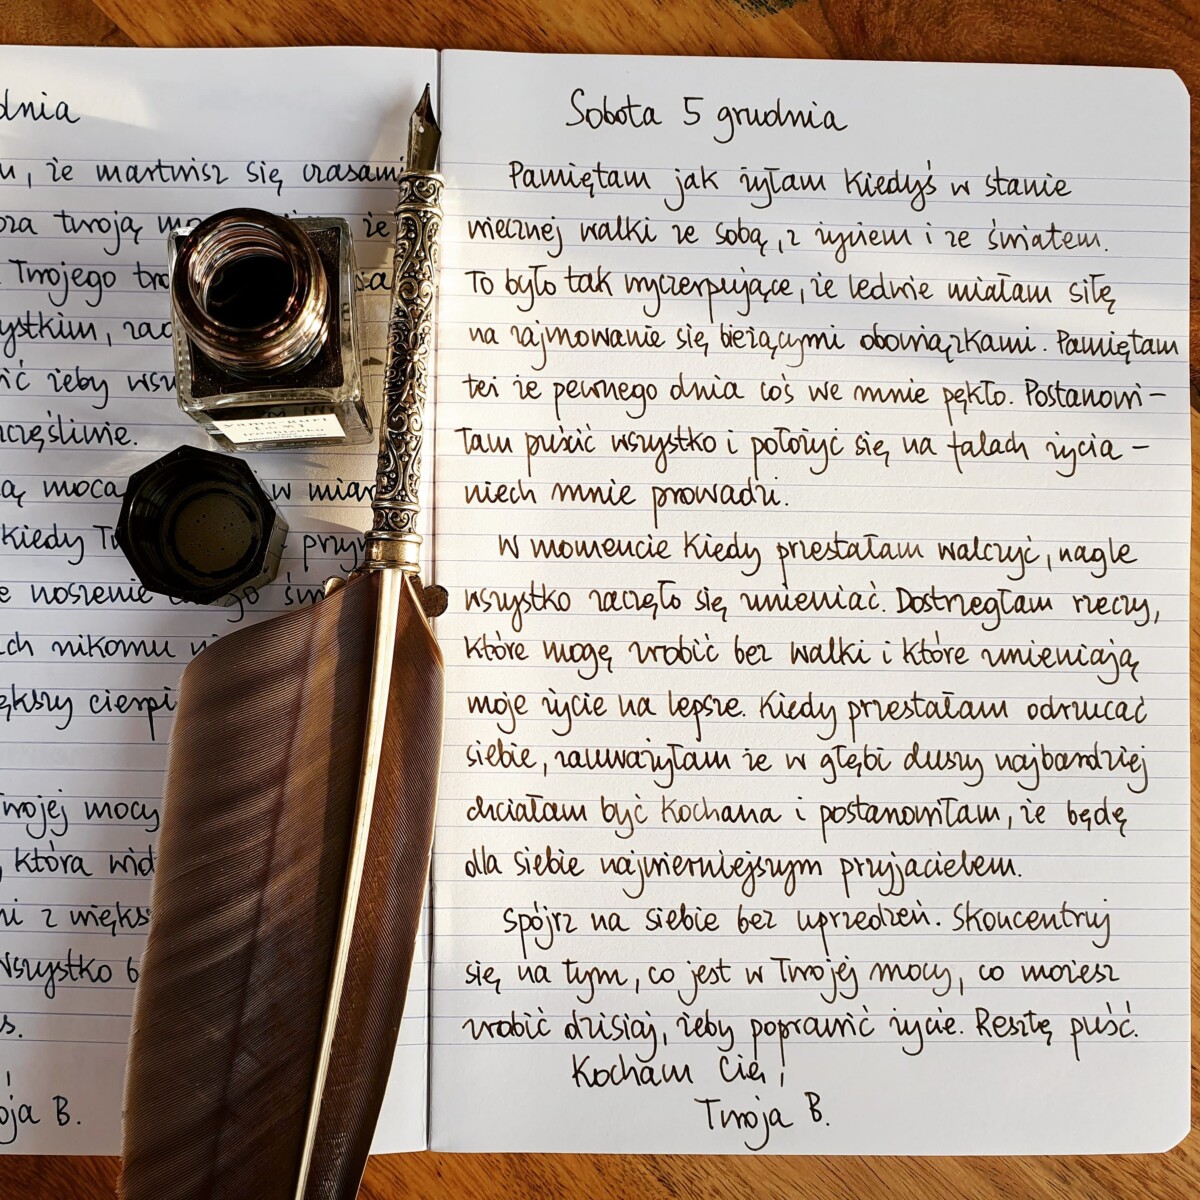 dnia
, że martwisz się czasami
twoją
że
Twojego
ystkim,
żeby
częśliwie.
moca
w
Kiedy
noszenie
nikomu
Twojej mocy
która
z
Wszystko
B.
Sobota 5 grudnia
Pamiętam jak żyłam kiedyś w stanie
wiecznej walki ze sobą, z życiem i ze światem.
To było tak wyczerpujące, że ledwie miałam siłę
na zajmowanie się bieżącymi obowiązkami. Pamiętam
też że pewnego dnia coś we mnie pękło. Postanowi-
łam puścić wszystko i położyć się na falach życia -
niech mnie prowadzi.
W momencie kiedy przestałam walczyć, nagle
wszystko zaczęło się zmieniać. Dostrzegłam rzeczy,
które mogę zrobić bez walki i które zmieniają
moje życie na lepsze. Kiedy przestałam odrzucać
siebie, zauważyłam że w głębi duszy najbardziej
chciałam być kochana i postanowiłam, że będę
dla siebie najwierniejszym przyjacielem.
Spójrz na siebie bez uprzedzeń. Skoncentruj
się na tym, co jest w Twojej mocy, co możesz
zrobić dzisiaj, żeby poprawić życie. Resztę puść.
Kocham Cię,
Twoja B.